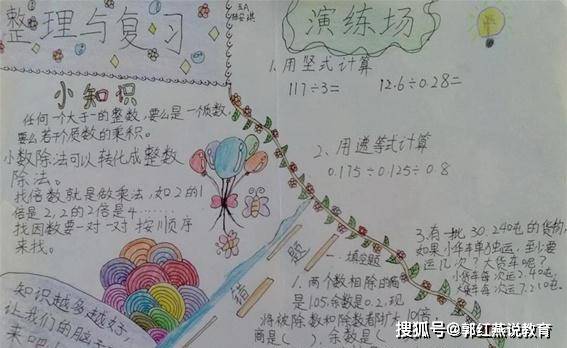 整理与复习
五A
小知识
任何一个大于一的整数,要么是一个质数,
要么若干个质数的乘积。
小数除法可以转化成整数
除法。
找倍数就是做乘法,如2的1
倍是2,2的2倍是4……
找因数要一对一对按顺序
来找。
知识越多越好
让我们的脑
来吧
演练场
1.用竖式计算
117÷3= 12.6÷0.28=
2、用递等式计算
0.175÷0.125÷0.8
3.有一批30.240吨的货物,
如果小货车单独运,至少要
运几次?大货车呢?
小货车每次运2.40吨
大货车每次运7.210吨
错题
一、填空题
1.两个数相除的商
是105,余数是0.2,现
将被除数和除数都扩大10倍,
商是( )、余数是(
搜狐号@郭红燕说教育